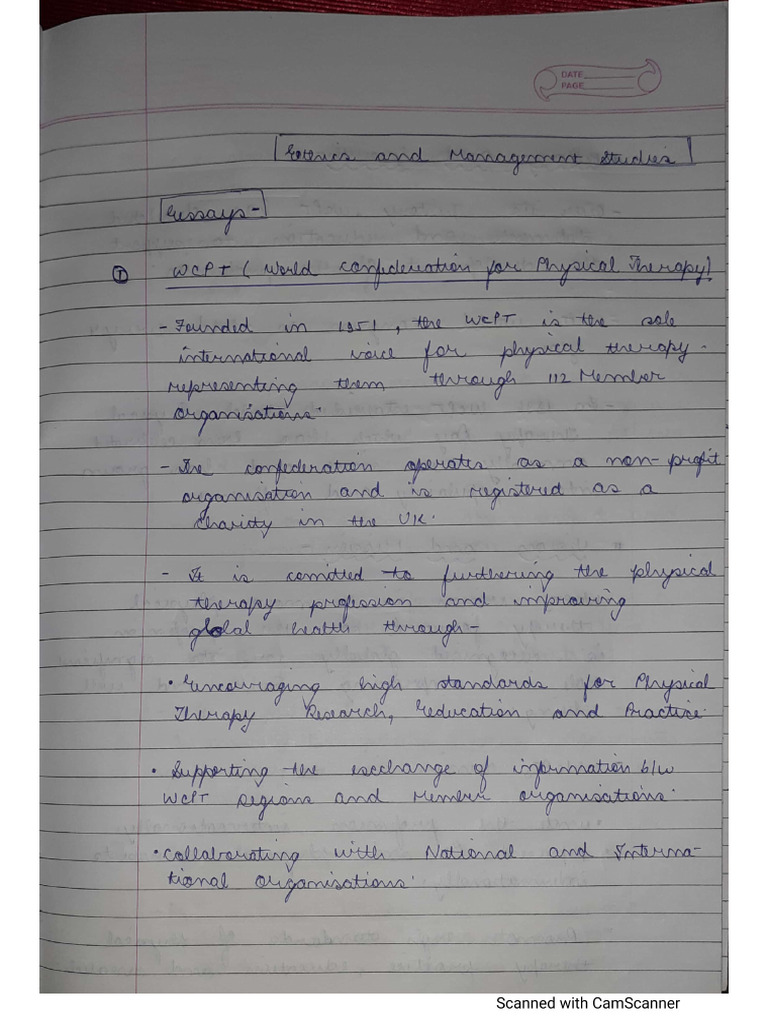 DATE
PAGE
Ethics and Management Studies
Essays-
① WCPT (World Confederation for Physical Therapy)
- Founded in 1951, the WCPT is the sole
international voice for physical therapy.
representing them through 112 Member
organisations.
- The confederation operates as a non-profit
organisation and is registered as a
charity in the UK.
- It is comitted to furthering the physical
therapy profession and improving
global health through-
• Encouraging high standards for Physical
Therapy Research, Education and Practice.
• Supporting the excchange of information b/w
WCPT Regions and member organisations.
• Collaborating with National and Interna-
tional organisations.
Scanned with CamScanner